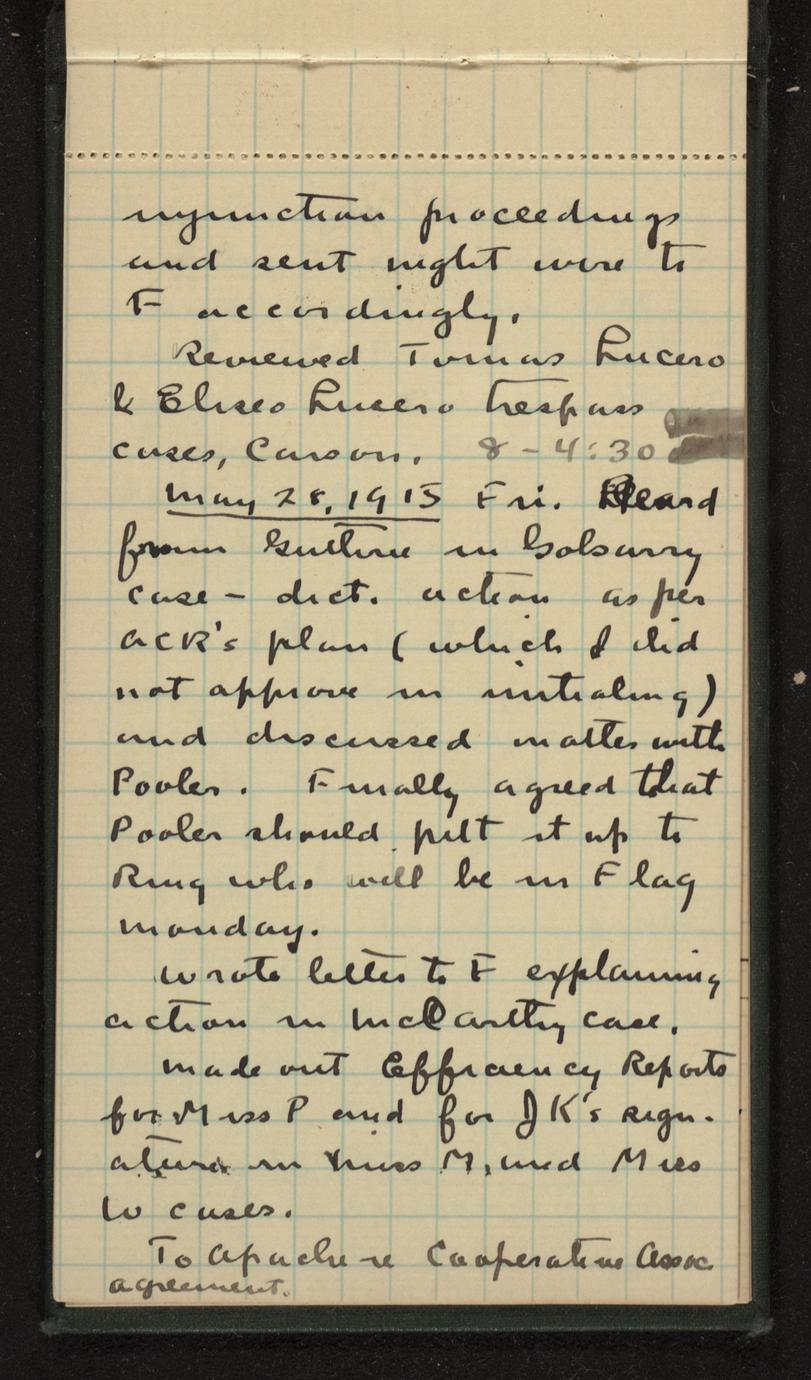 injunction proceedings
and sent night wire to
F accordingly.
Reviewed Tomas Lucero
& Eliseo Lucero trespass
cases, Carson. 8 - 4:30
May 28, 1915 Fri. Heard
from Guthrie in
case - dict. action as per
ACR's plan (which I did
not approve in initialing)
and discussed matter with
Pooler. Finally agreed that
Pooler should put it up to
Ring who will be in Flag
Monday.
Wrote letter to F explaining
action in McCarthy case.
Made out Efficiency Reports
for Miss P and for JK's sign-
ature in Miss M, and Miss
W cases.
To Apache re Cooperative Assoc
agreement.